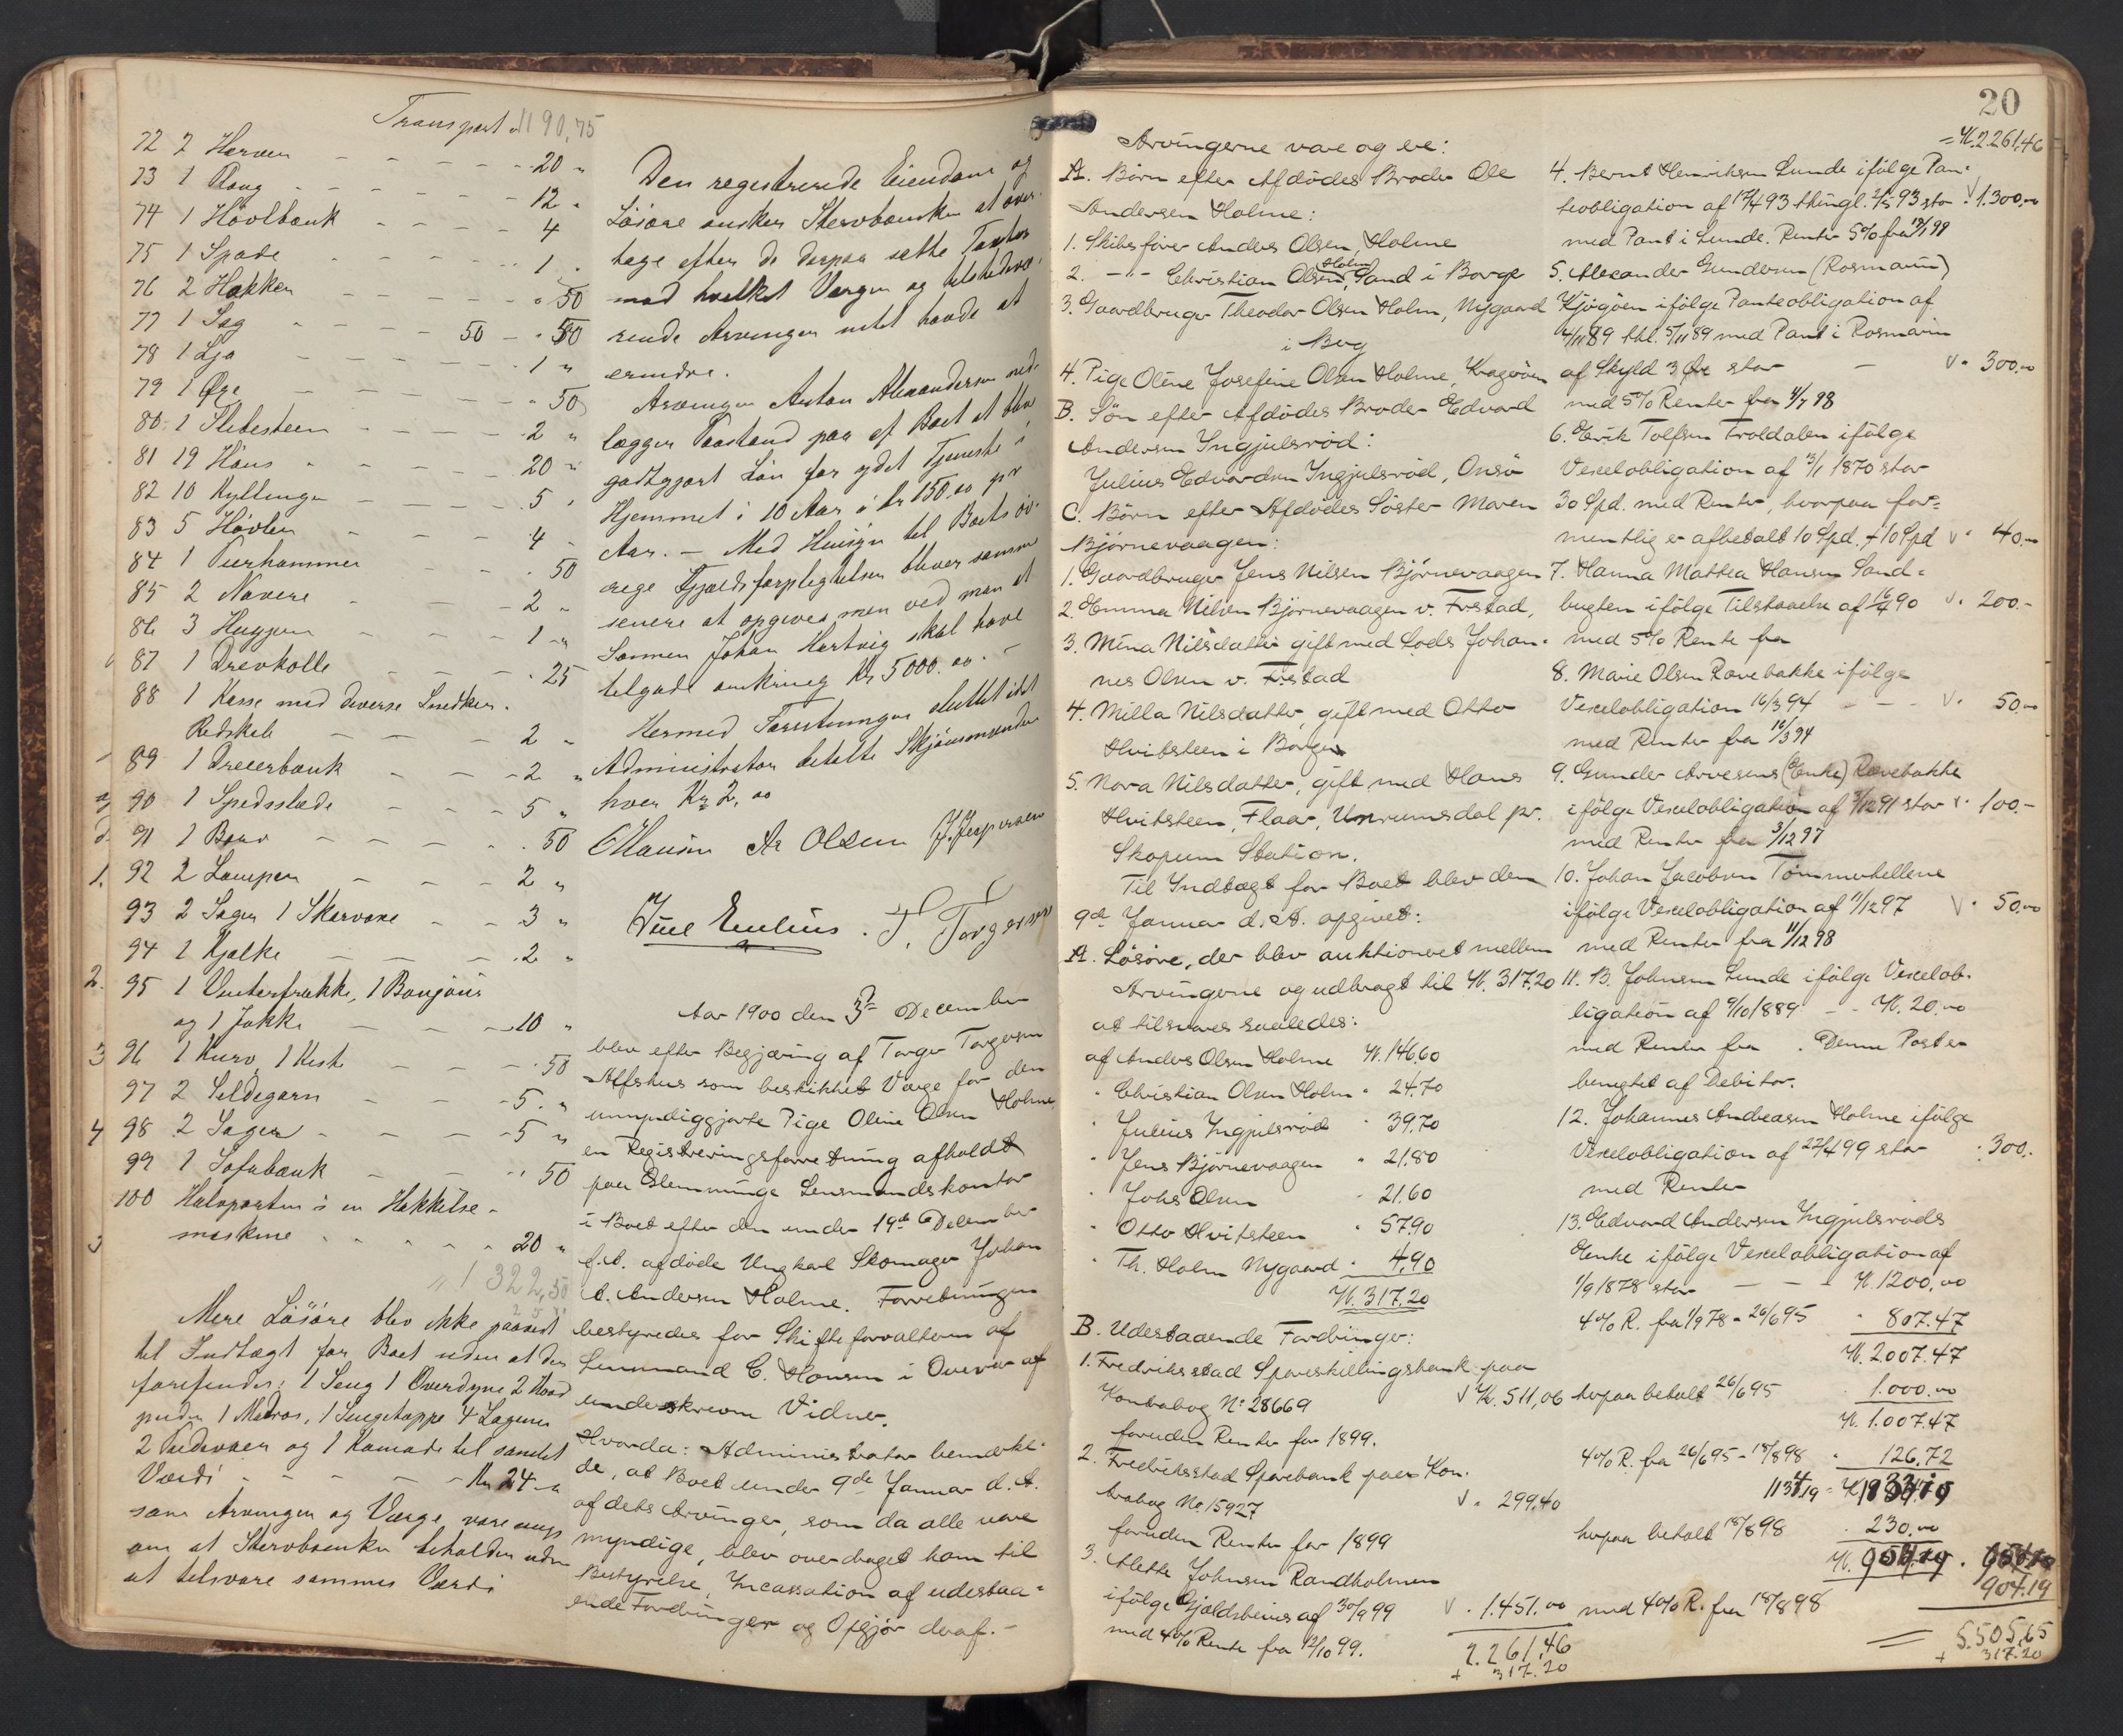 Transport " 1190,75
72 2 Harver - - - - - - 20 "
73 1 Ploug - - - - - - 12 "
74 1 Hövlbænk - - - - 4
75 1 Spade - - - - - 1 "
76 2 Hakker - - - - - " 50
77 1 Sag - - - - 50 - " 50
78 1 Ljo - - - - - 1 "
79 1 Øxe - - - - - " 50
80 1 Slibesteen - - - - - 2 "
81 19 Höns - - - - - 20 "
82 10 Kyllinger - - - - 5 "
83 5 Hövler - - - - 4 "
84 1 Pukhammer - - - 50
85 2 Navere - - - - 2 "
86 3 Huggjern - - - - 1 "
87 1 Drevkolle - - - - 25
88 1 Kasse med diverse Snedker-
Redskab - - - - 2 "
89 1 Dreierbænk - - - 2 "
90 1 Spedsslæde - - - 5 "
91 1 Baar - - - - - 50
92 2 Lamper - - - 2 "
93 2 Sager 1 Skarvøxe - - 3 "
94 1 Kjælke - - - - 2 "
95 1 Vinterfrakke, 1 Bonjour
og 1 Jakke - - - - 10 "
96 1 Kurv, 1 Kiste - - - " 50
97 2 Sildegarn - - - 5 "
98 2 Sager - - - - 5 "
99 1 Sofabænk - - - " 50
100 Halvparten i en Hakkelse-
maskine - - - - - 20 "
" 1322,50
Mere Lösöre blev ikke paavist
til Indtægt for Boet uden at der
forefindes: 1 Seng 1 Overdyne 2 Hoved
puder 1 Madras, 1 Sengeteppe 4 Lagener
2 Pudevaer og 1 Komode til samlet
Værdi - - - - - Kr 24 -
som Arvinger og Værge vare enige
om at Stervboenken beholder uden
at tilsvare sammes Værdi
Den registrerede Eiendom og
Lösöre ønsker Stervboenken at over-
tage efter de derpaa satte Taxter
mod hvilket Vergen og tilstedevæ-
rende Arvinger intet havde at
erindre.
Arvingen Anton Alexandersen ned-
lægger Paastand paa af Boet at blive
godtgjort Lön for ydet Tjeneste i
Hjemmet i 10 Aar á kr 150,00 pr
Aar. - Med Hensyn til Boets öv-
rige Gjældsforpligtelser bliver samme
senere at opgives men ved man at
Sønnen Johan Hartvig skal have
tilgode omkring Kr 5000.00. -
Hermed Forretningen sluttet idet
Administrator betalte Skjönsmændene
hver Kr 2,00
CHansen Ar Olsen J. Jespersen
Juul Emilius . T. Torgersen
Aar 1900 den 3die December
blev efter Begjæring af Torger Torgersen
Alfshus som beskikket Værge for den
umyndiggjorte Pige Oline Olsen Holme,
en Registreringsforretning afholdt
paa Glemminge Lensmandskontor
i Boet efter den under 19de December
f.A. afdöde Ungkarl Skomager Johan
A. Andersen Holme. Forretningen
bestyredes for Skifteforvalteren af
Lensmand C. Hansen i Overvær af
underskrevne Vidner.
Hvorda: Administrator bemærke-
de, at Boet under 9de Januar d. A.
af dets Arvinger, som da alle vare
myndige, blev overdraget ham til
Bestyrelse, Incassation af udestaa-
ende Fordringer og Opgjör deraf. -
20
Arvingerne vare og ere:
A. Börn efter Afdödes Broder Ole
Andersen Holme:
1. Skibsförer Anders Olsen, Holme
2. - - Christian Olsen Holm, Sand i Borge
3. Gaardbruger Theodor Olsen Holm, Nygaard
i Berg
4. Pige Oline Josefine Olsen Holme, Kragerøen
B. Sön efter Afdödes Broder Edvard
Andersen Ingjulsröd:
Julius Edvardsen Ingjulsröd, Onsö
C. Börn efter Afdödes Söster Maren
Björnevaagen:
1. Gaardbruger Jens Nilsen Björnevaagen
2. Emma Nilsen Björnevaagen v. Frstad,
3. Mina Nilsdatter gift med Lods Johan-
nes Olsen v. Frstad
4. Milla Nilsdatter, gift med Otto
Hvitsteen i Borge
5. Nora Nilsdatter, gift med Hans
Hvitsteen, Flaar, Unrumsdal pr.
Skopum Station.
Til Indtægt for Boet blev den
9de Januar d. A. opgivet:
A. Lösöre, der blev auktioneret mellem
Arvingerne og udbragt til Kr. 317.20
at tilsvares saaledes:
af Anders Olsen Holme Kr. 146,60
" Christian Olsen Holm " 24,70
" Julius Ingjulsröd " 39,70
" Jens Björnevaagen " 21,80
" Johs Olsen " 21.60
" Otto Hvitsteen " 57.90
" Th. Holm Nygaard " 4,90
Kr. 317,20
B. Udestaaende Fordringer:
1. Fredriksstad Spareskillingsbank paa
Kontrabog No 28669 V Kr. 511,06
foruden Renter for 1899.
2. Fredriksstad Sparebank paa Kon-
trabog No 15927 V " 299.40
foruden Renter for 1899
3. Mette Johnsen Randholmen
ifölge Gjældsbevis af 30/9 99 V " 1.451.00
med 4% Rente fra 12/10 99.
2.261,46
+ 317.20
= Kr. 2.261,46
4. Bernt Henriksen Lunde ifölge Pan-
teobligation af 17/4 93 thingl. 2/5 93 stor V 1.300,00
med Pant i Lunde. Renter 5% fra 13/1 99
5. Alexander Gundersen (Rosmarin)
Kjögöen ifölge Panteobligation af
4/11 89 thl. 5/11 89 med Pant i Rosmarin
af Skyld 3 Øre stor - V " 300,00
med 5% Renter fra 4/7 98
6. Erik Tolfsen Troldalen ifölge
Vexelobligation af 13/1 1870 stor
30 Spd. med Renter, hvorpaa for-
mentlig er afbetalt 10 Spd. + 10 Spd V " 40,00
7. Hanna Mathea Hansen Sand-
bugten ifölge Tilstaaelse af 16/4 90 V " 200.-
med 5% Rente fra
8. Marie Olsen Rævebakke ifölge
Vexelobligation 16/3 94 - - - V " 50,00
med Renter fra 16/3 94
9. Gunder Arvesens (Enke) Rævebakke
ifölge Vexelobligation af 3/12 91 stor V " 100.-
med Renter fra 3/12 97
10. Johan Jacobsen Tømmerhellene
ifölge Vexelobligation af 11/12 97 V " 50,00
med Renter fra 11/12 98
11. B. Johnsen Lunde ifölge Vexelob-
ligation af 9/10 1889 - - Kr. 20.00
med Renter fra . Denne Post er
benegtet af Debitor.
12. Johannes Andreasen Holme ifölge
Vexelobligation af 22/4 99 stor " 300.
med Renter
13. Edvard Andersen Ingjulsröds
Enke ifölge Vexelobligation af
1/9 1878 stor - - - Kr. 1200,00
4% R. fra 1/9 78 - 26/6 95 " 807.47
Kr. 2007.47
hvpaa betalt 26/6 95 1.000.00
Kr. 1.007.47
4% R. fra 26/6 95 - 18/8 98 " 126,72
1134,19
hvpaa betalt 18/8 98 230,00
904.19
med 4% R. fra 18/8 98
= 5.505,65
+ 317.20